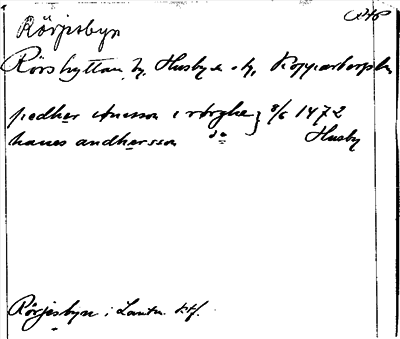 Rörjesbyn
Rörshyttan, by, Husby s. h., Kopparbergs l.
pedher anesson i rørghe } 8/6 1472
hanes andhersson do Husby
Rörjesbyn i Lantm. Ktf.